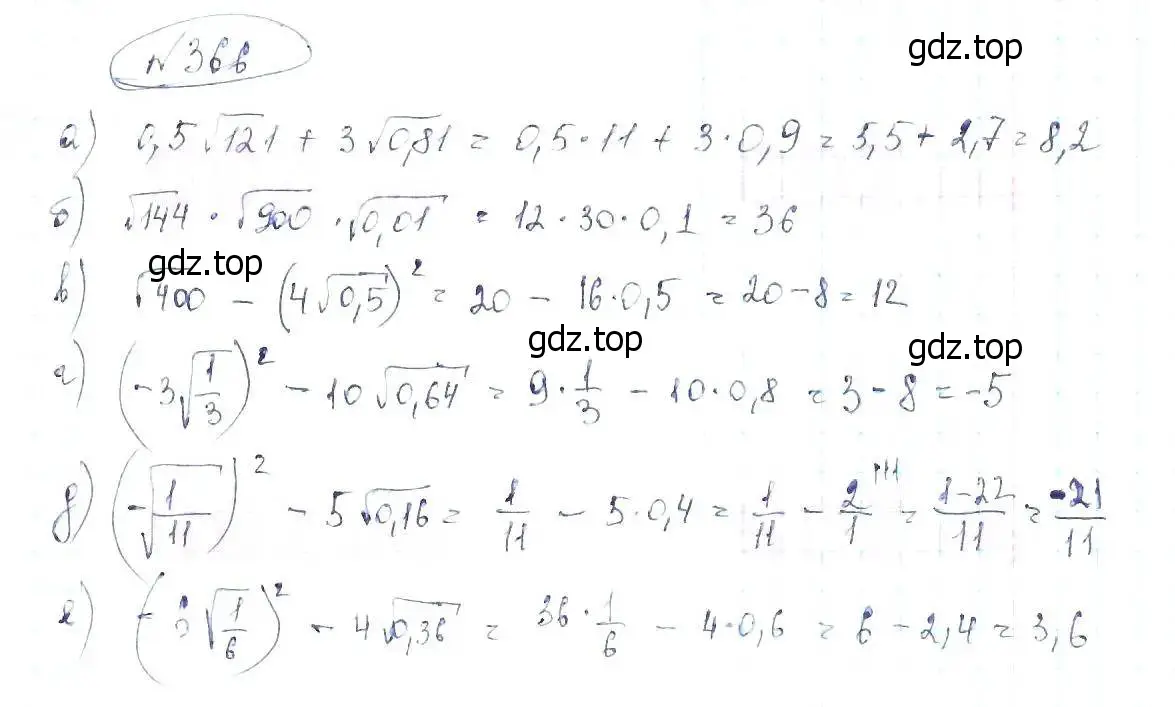 gdz.top
№366
а) 0,5√121 + 3√0,81 = 0,5·11 + 3·0,9 = 5,5 + 2,7 = 8,2
б) √144 · √900 · √0,01 = 12·30·0,1 = 36
gdz.top
в) √400 − (4√0,5)² = 20 − 16·0,5 = 20 − 8 = 12
gdz.top
gdz.top
г) (−3√(1/3))² − 10√0,64 = 9·1/3 − 10·0,8 = 3 − 8 = −5
д) (−√(1/11))² − 5√0,16 = 1/11 − 5·0,4 = 1/11 − 2/1 = (1−22)/11 = −21/11
е) (−6√(1/6))² − 4√0,36 = 36·1/6 − 4·0,6 = 6 − 2,4 = 3,6